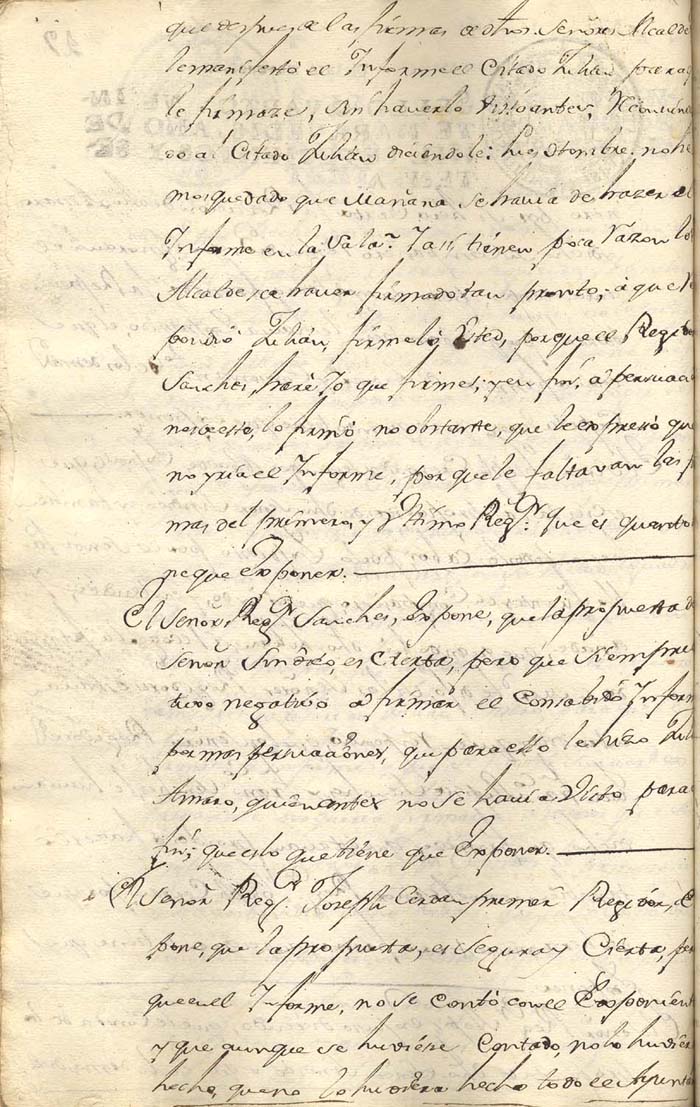 que despues de las firmas de dhos. Señores Alcalde
le manifestó el Informe el Citado Julian para q
le firmaze, sin haverlo visto antes, Reconvinien
do al Citado Julian diciendole: hues Hombre. no he
mos quedado que Mañana se havia de hazer el
Informe en la Sala? Y asi tienen poca Razon lo
Alcaldes de haver firmado tan pronto; à que
pondió Julian, firmelo Usted, porque el Regid
Sanches, haré Yo que firme; y en fin, à persuaci
nes de esto, lo firmó no obstante, que le expresó que
no yria el Informe, por que le faltavan las
mas del primero, y Ultimo Regr. que es quanto
ne que Exponer.
El Señor Regr. Sanches, Expone, que la propuesta de
Señor Sindico, es Cierta, pero que Siempre
tuvo negativo à firmar el Contabido Inform
por mas persuaciones, que para ello le hizo Juli
Amaro, quien antes no se havia Visto para
fin; que es lo que tiene que Exponer.
El Señor Regr. Joseph Cerdan primer Regidor, E
pone, que la propuesta, es Segura y Cierta, per
que en el Informe, no se Contó con el Exponient
y que aunque se huviese Contado, no lo huvier
hecho, que no lo huviera hecho todo el Ayunta